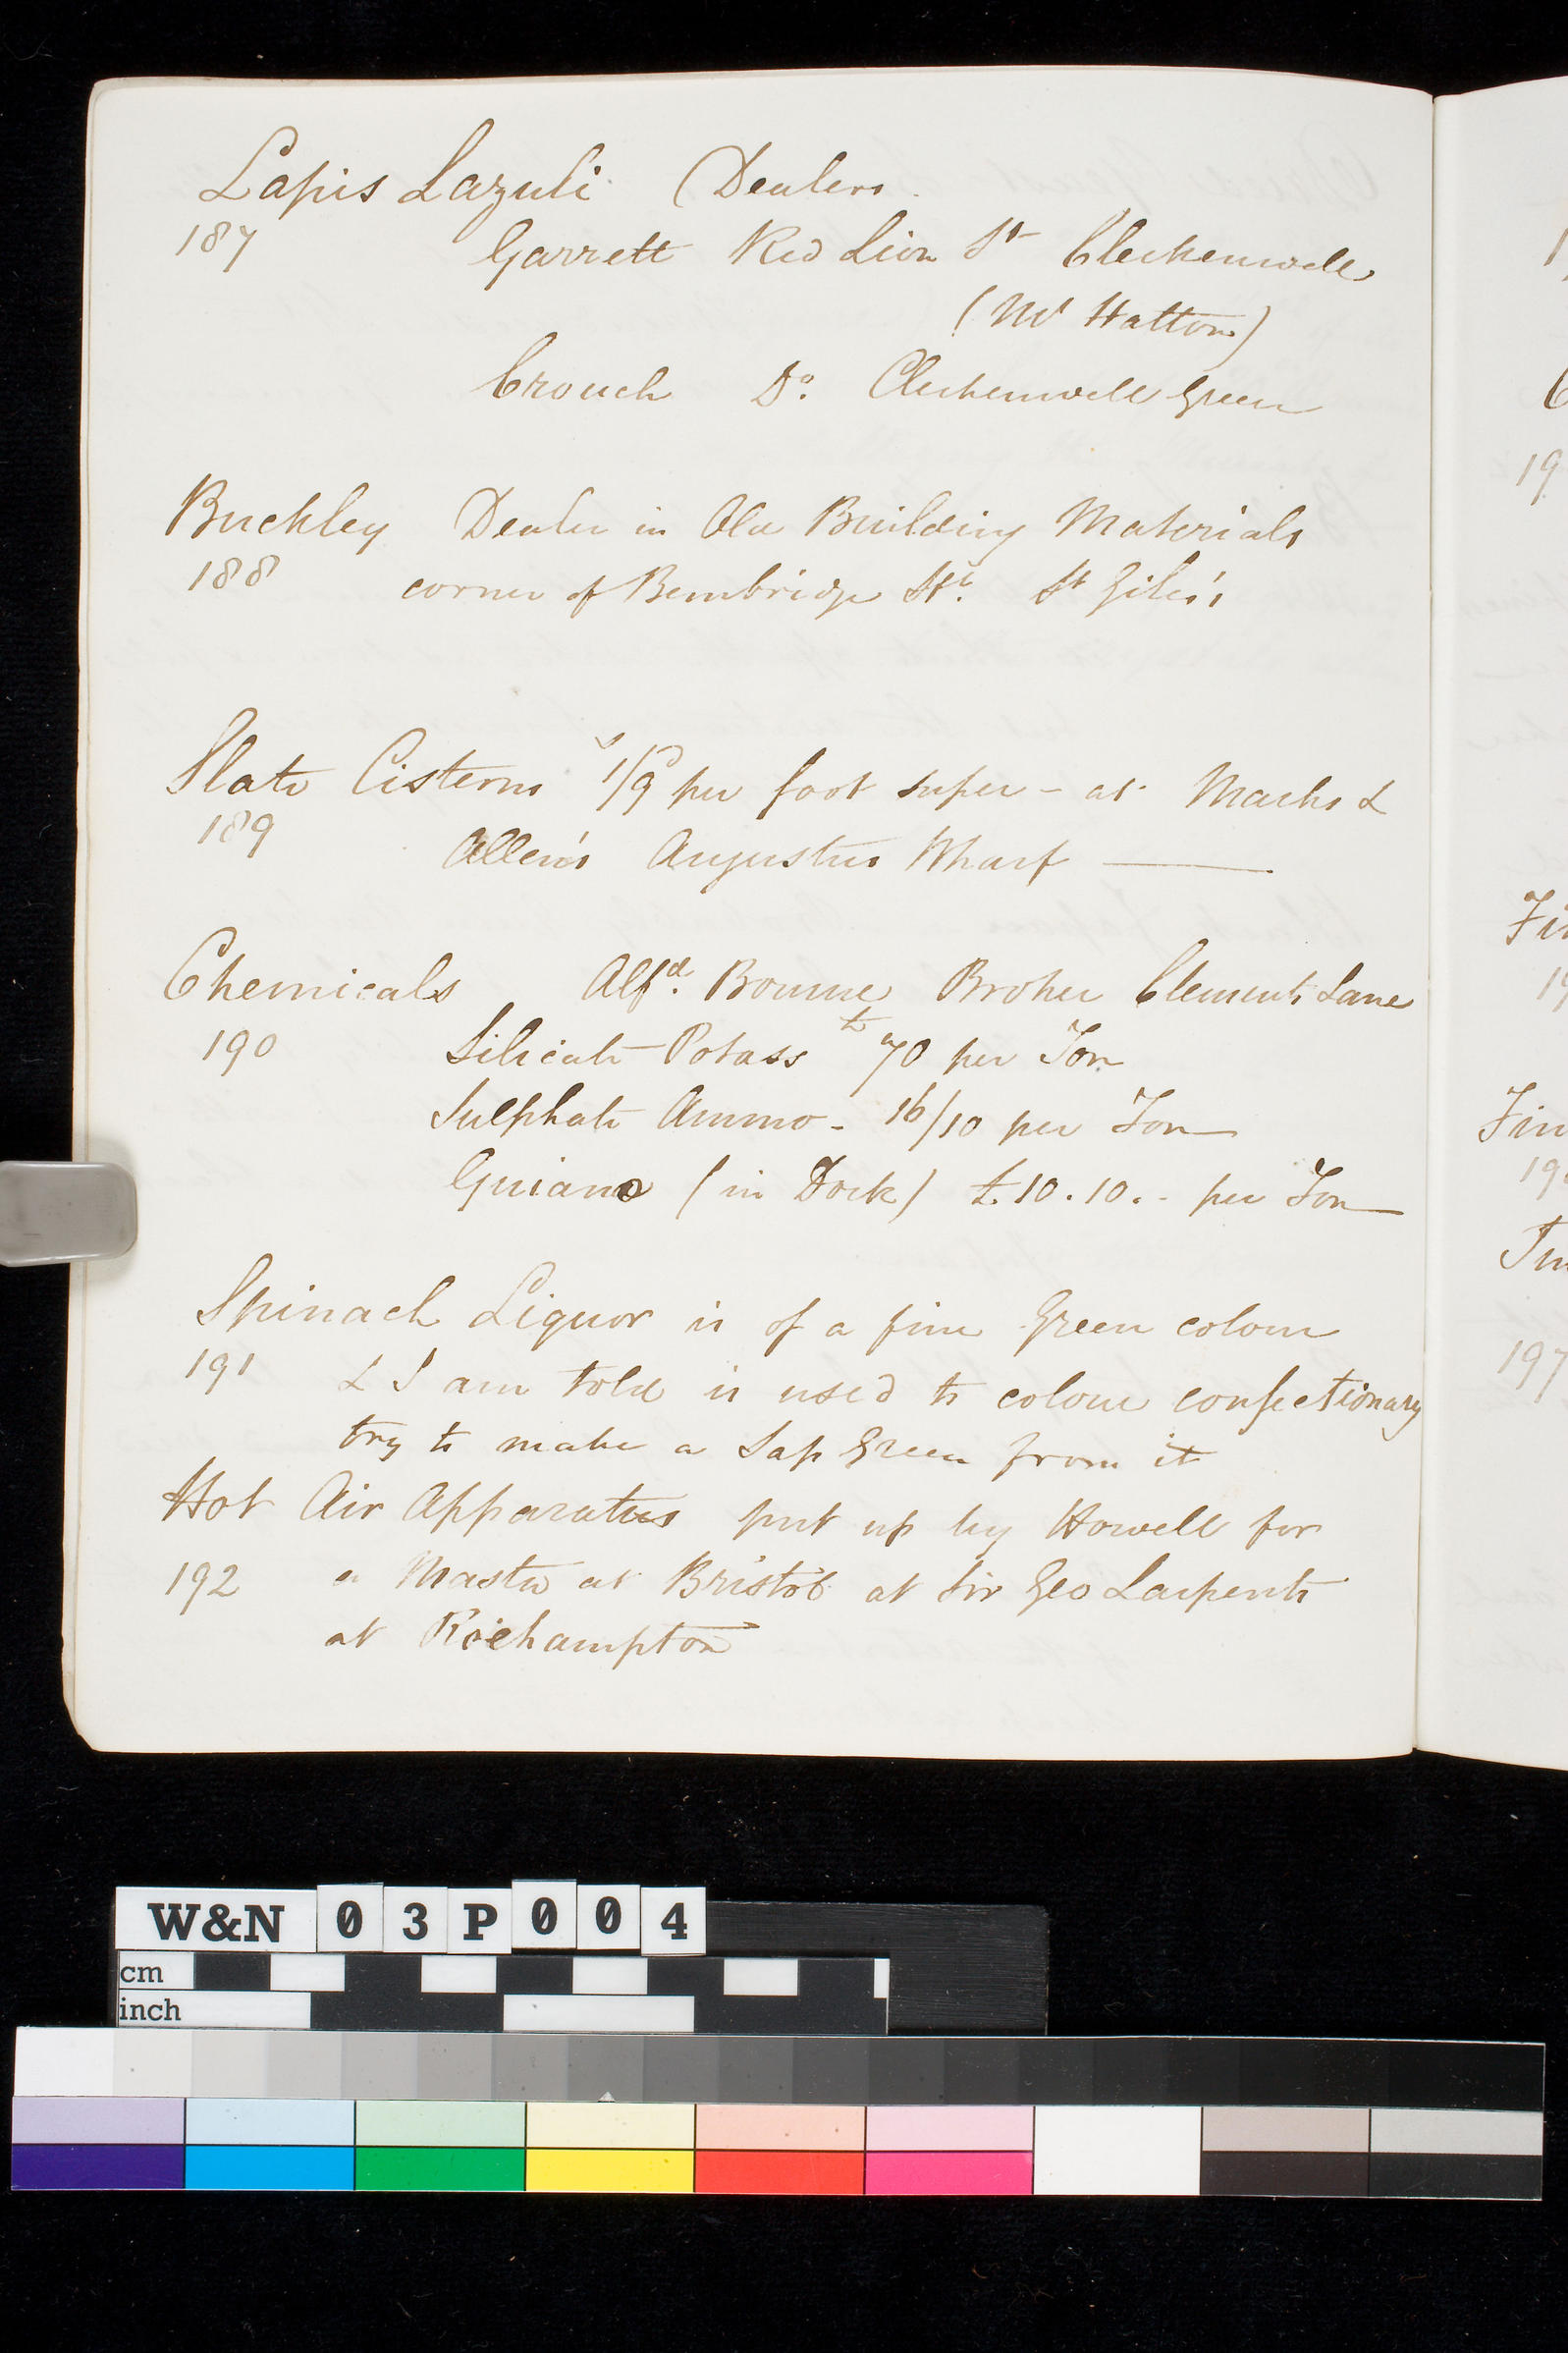 Lapis Lazuli (Dealers
187 Garrett Red Lion St Clerkenwell
(Mr Hatton)
Crouch Do. Clerkenwell Green
Buckley Dealer in Old Building Materials
188 corner of Bembridge St. St Giles's
Slate Cisterns s 1/9 D per foot super - at Marks &
189 Allen's Augustus Wharf
Chemicals Alfd. Bourne Broker Clements Lane
190 Silicate Potass £ 70 per Ton
Sulphate Ammo - 16/10 per Ton
Guiano (in Dock) £10.10.- per Ton
Spinach Liquor is of a fine Green colour
191 & I am told is used to colour confectionary
try to make a Sap Green from it
Hot Air Apparatus put up by Howell for
192 a Master at Bristol at Sir Geo Larpents
at Roehampton
19
Fin
19
Fin
19
197
W&N 03P004
cm
inch